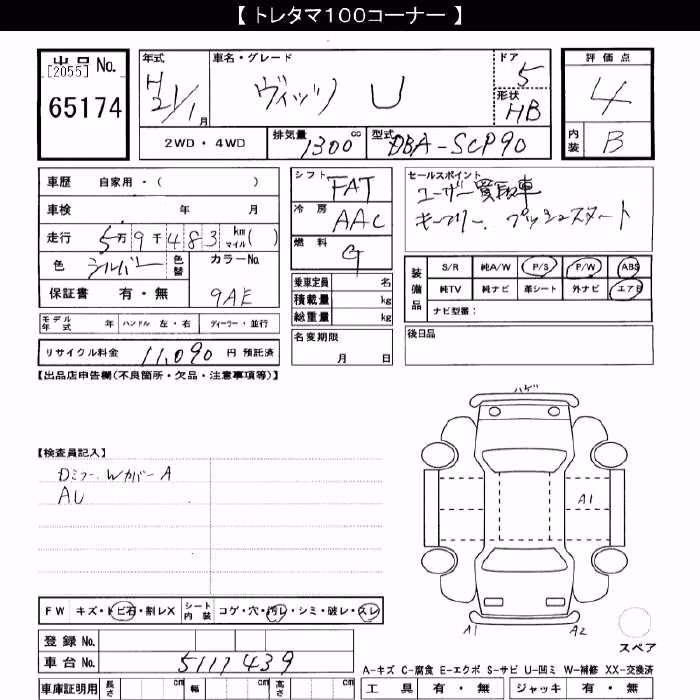 【 トレタマ100コーナー 】
出品 No.
[2055]
65174
年式
H21/1月
車名・グレード
ヴィッツ U
ドア
5
形状
HB
評価点
4
内装 B
2WD・4WD
排気量 1300 cc
型式 DBA-SCP90
車歴 自家用・( )
車検 年 月
走行 5万9千483 km マイル( )
色 シルバー 色替 カラーNo.
保証書 有・無 9AE
モデル年式 年 ハンドル 左・右 ディーラー・並行
リサイクル料金 11,090 円 預託済
シフト FAT
冷房 AAC
燃料 G
乗車定員 名
積載量 kg
総重量 kg
名変期限
月 日
セールスポイント
ユーザー買取車
キーフリー、プッシュスタート
装備品
S/R 純A/W P/S P/W ABS
純TV 純ナビ 革シート 外ナビ エアB
ナビ型番：
後日品
【出品店申告欄(不良箇所・欠品・注意事項等)】
【検査員記入】
Dミラー、Wカバー A
AU
ハゲ
A1
A1
A2
スペア
FW キズ・トビ石・割レX
シート内装 コゲ・穴・汚レ・シミ・破レ・スレ
登録 No.
車台 No. 5117439
車庫証明用 長さ cm 幅 cm 高さ cm
A-キズ C-腐食 E-エクボ S-サビ U-凹ミ W-補修 XX-交換済
工具 有・無 ジャッキ 有・無